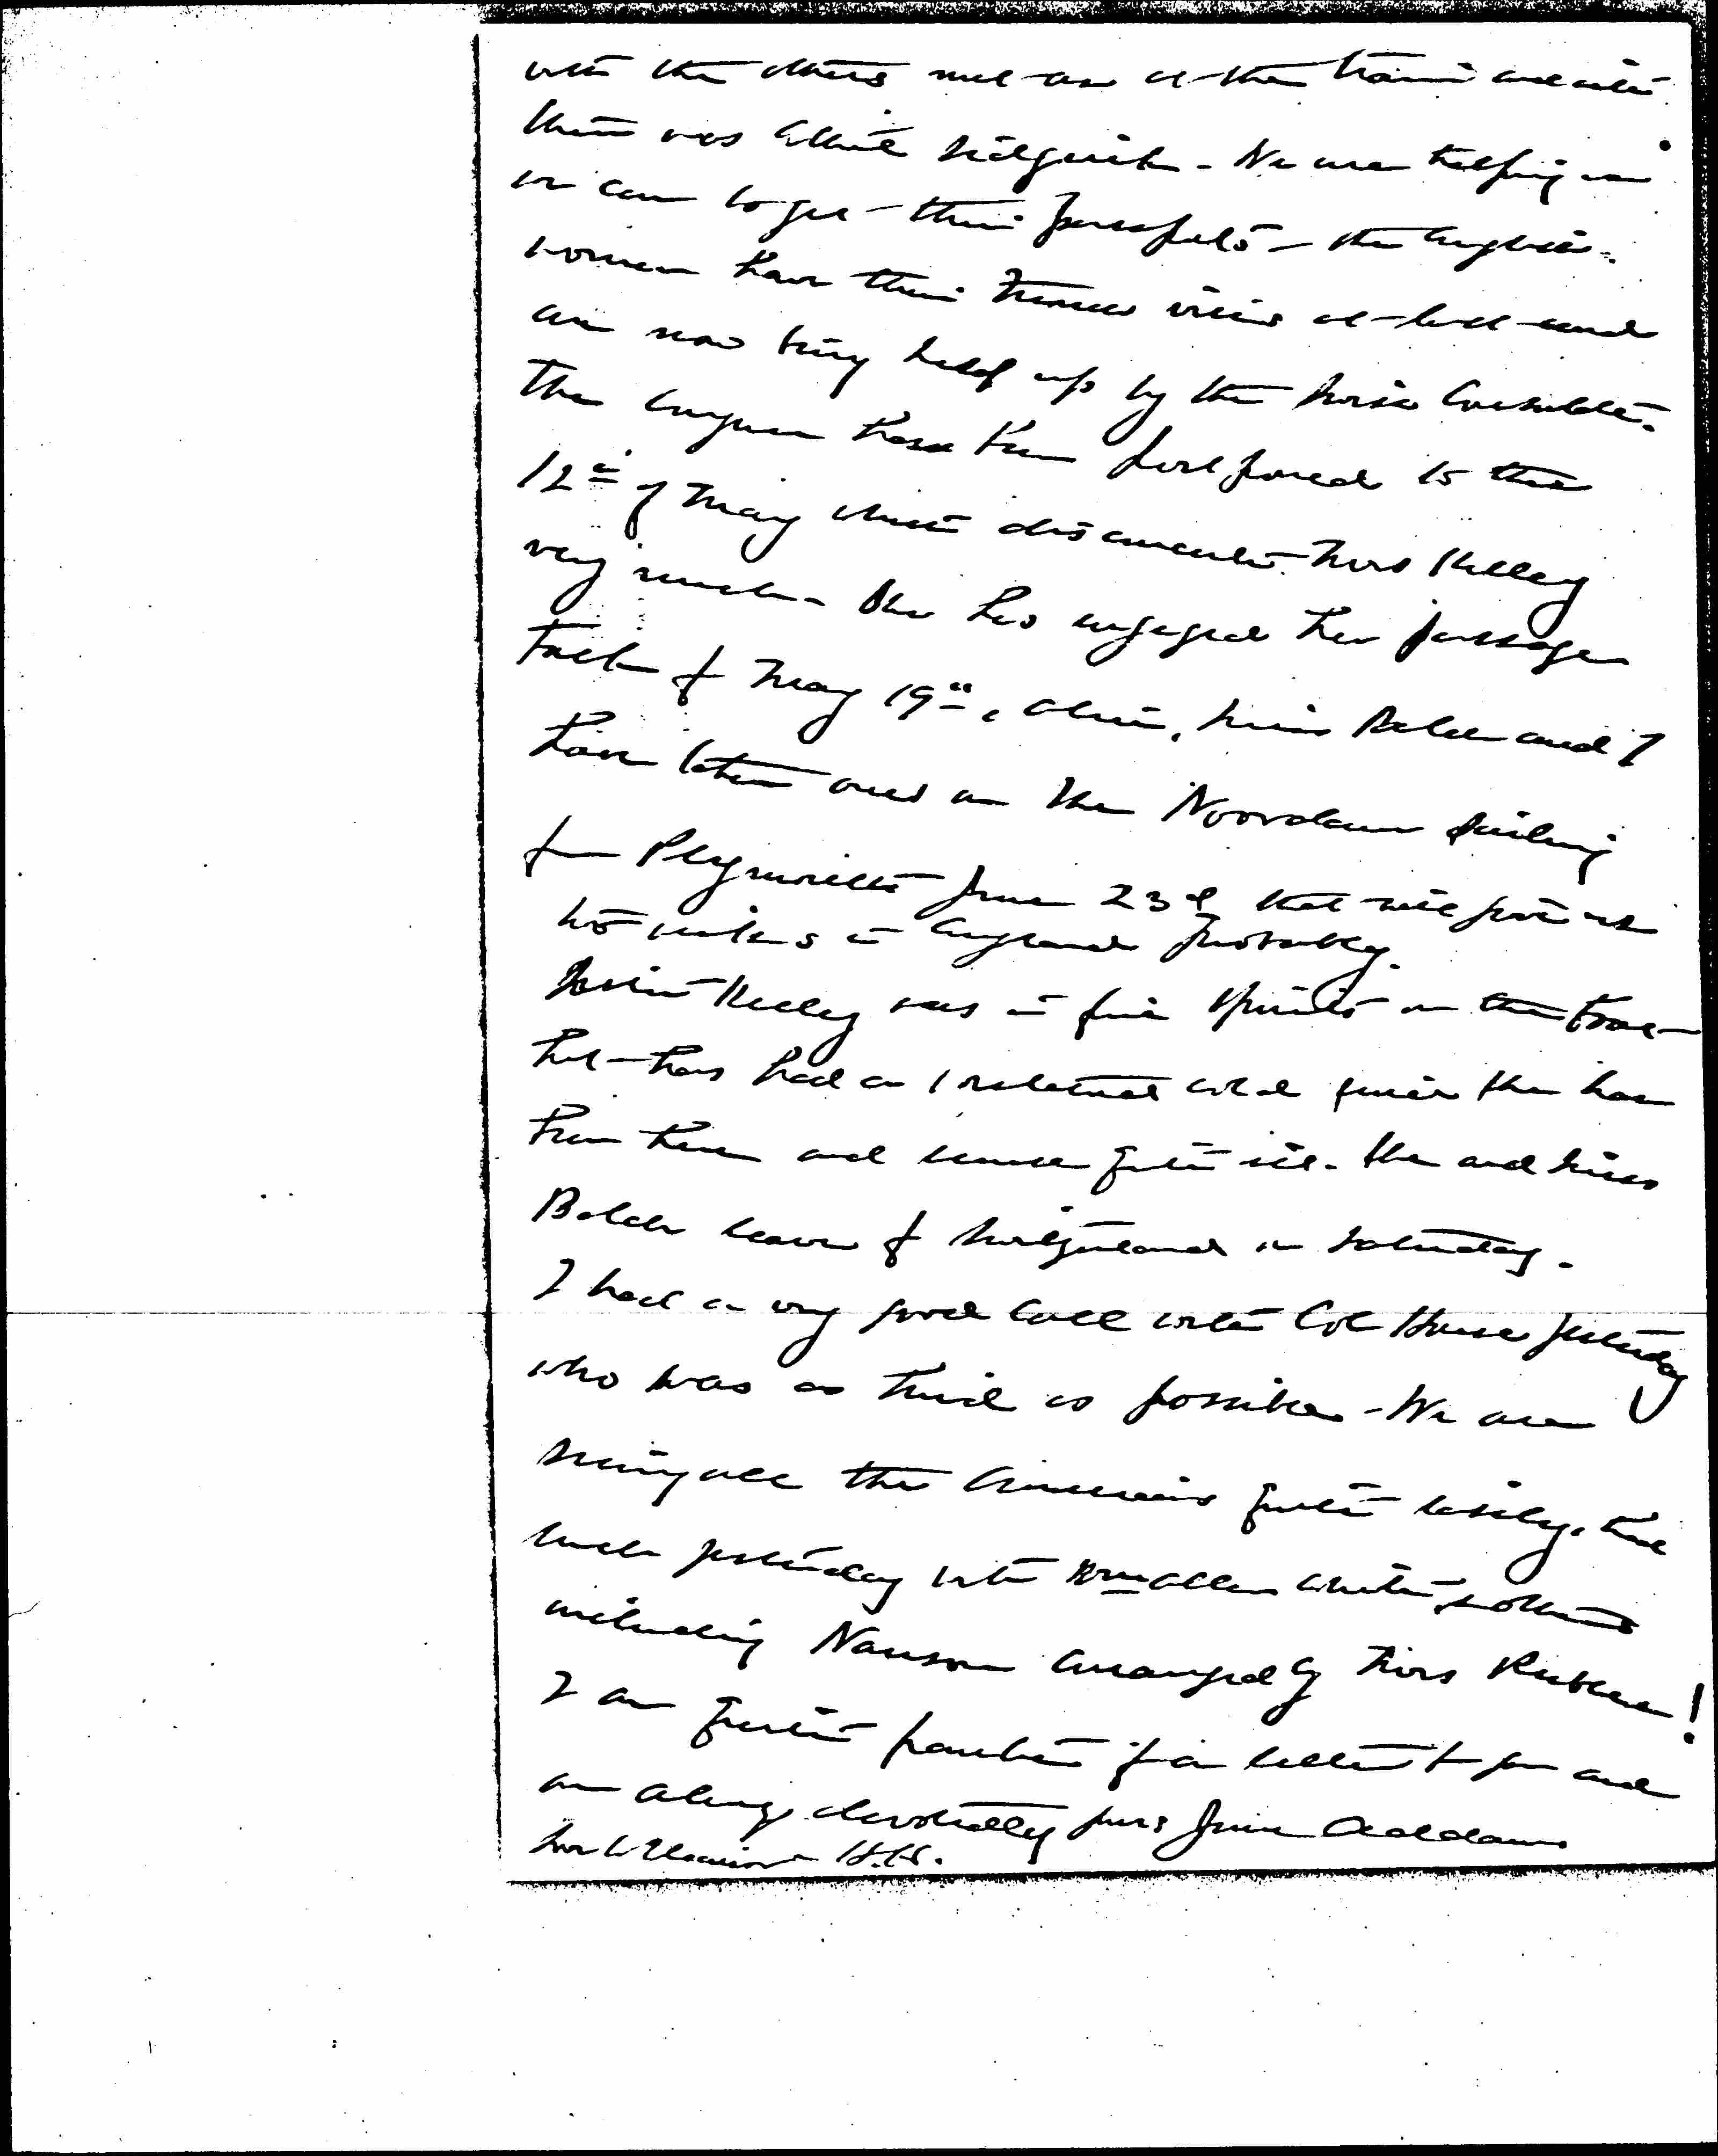 with the others met us at the train and with
them was Albert Kidquist - We are helping as
we can to get their passports - the English
women have their French visés at last and
are now being held up by the Swiss Consulate.
The Congress has been postponed to the
12th of May which disconcerts Mrs Kelley
very much - She has engaged her passage
back for May 19th, Alice, Miss Balch and I
have taken ones on the Noordam sailing
from Plymouth June 23d that will give us
two weeks in England probably.
Sister Kelley was in fine spirits on the boat
but has had a bronchial cold since she has
been here and seems quite ill. She and Miss
Balch leave for Switzerland on Saturday.
I had a very good call with Col House yesterday
who was as kind as possible - We are
seeing all the Americans quite easily, had
lunch yesterday with Wm Allen White & others
including Nansen arranged by Mrs Rublee!
I am quite panting for a letter from you and
am always devotedly yours Jane Addams
H.H.